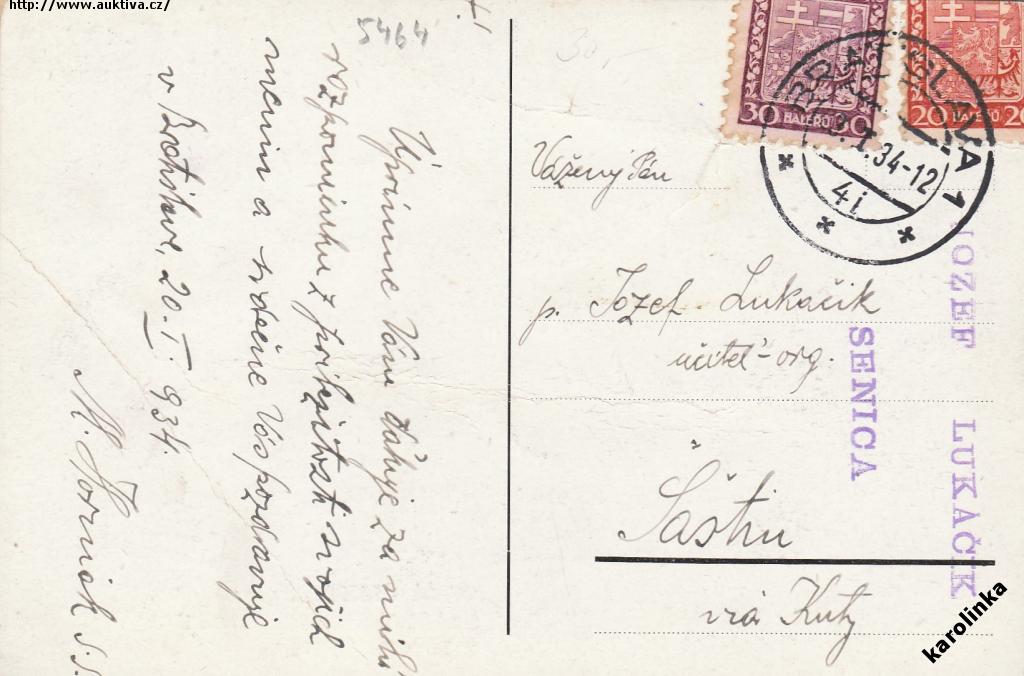 http://www.auktiva.cz/
5464
30,-
Úprimne Vám ďakuje za milú
rozpomienku z príležitosti svojich
menin a srdečne Vás pozdravuje
v Bratislave, 20. I. 934.
M. Horniak S.S.
30 HALÉŘŮ 30
20 HALÉŘŮ 20
BRATISLAVA 1
34-12
4i
Vážený Pán
p. Jozef Lukačik
učiteľ-org.
Šaštin
via Kuty
JOZEF LUKÁČIK
SENICA
karolinka